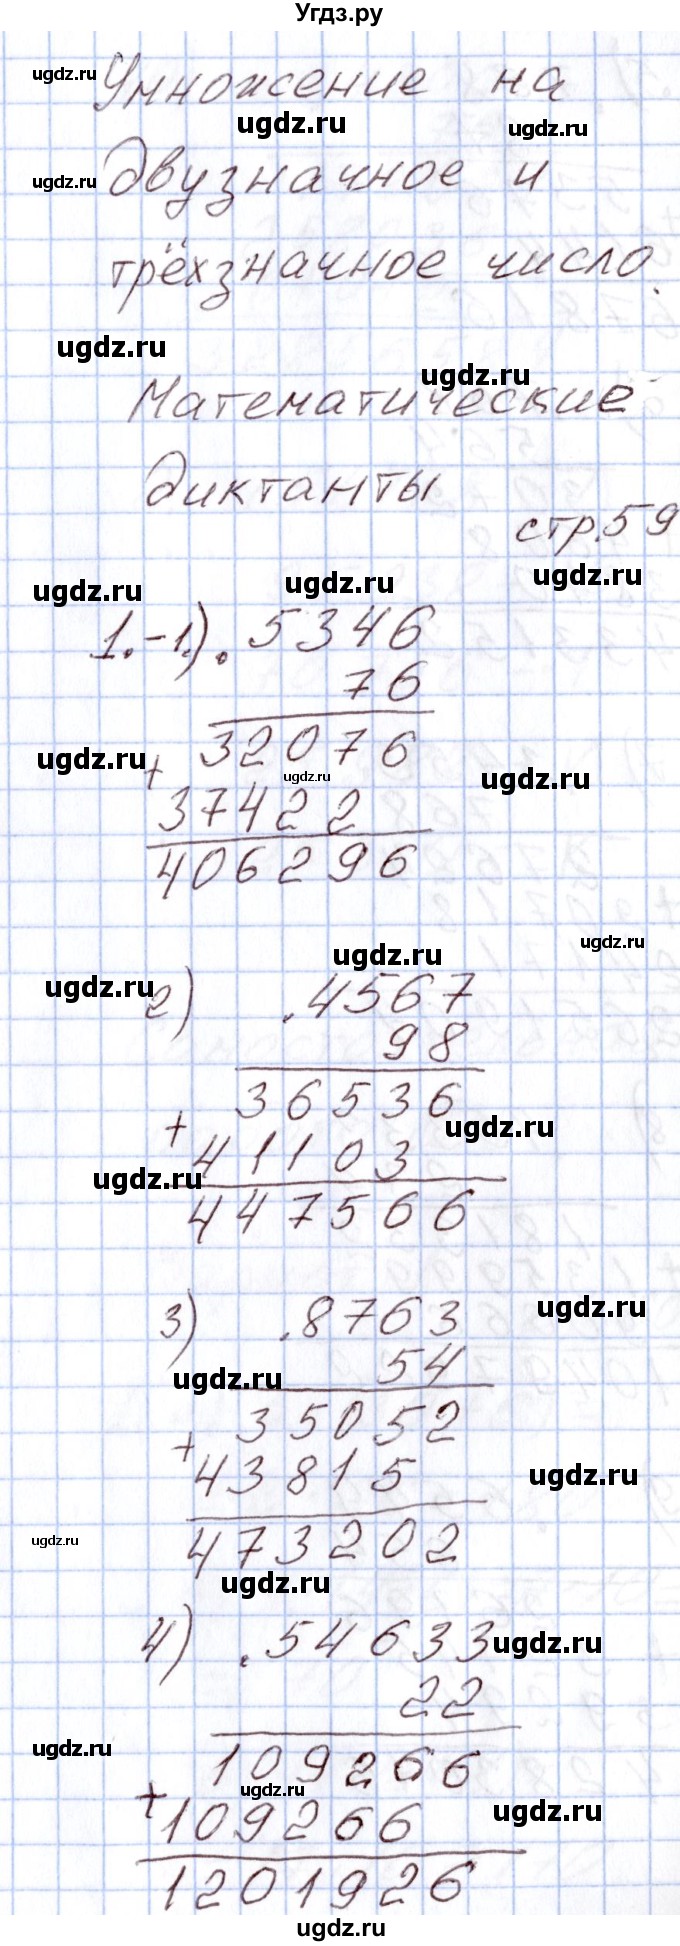 Угдз.ру
ugdz.ru
Умножение на
ugdz.ru
ugdz.ru
ugdz.ru
двузначное и
трёхзначное число.
ugdz.ru
ugdz.ru
Математические
диктанты
стр.59
ugdz.ru
ugdz.ru
ugdz.ru
1.-1). . 5346
76
32076
ugdz.ru
+
ugdz.ru
ugdz.ru
37422
406296
ugdz.ru
ugdz.ru
ugdz.ru
2) . 4567
98
36536
+
ugdz.ru
41103
ugdz.ru
447566
ugdz.ru
3) . 8763
54
ugdz.ru
35052
+
43815
ugdz.ru
473202
ugdz.ru
ugdz.ru
4) . 54633
ugdz.ru
22
ugdz.ru
109266
ugdz.ru
+
109266
ugdz.ru
1201926
ugdz.ru